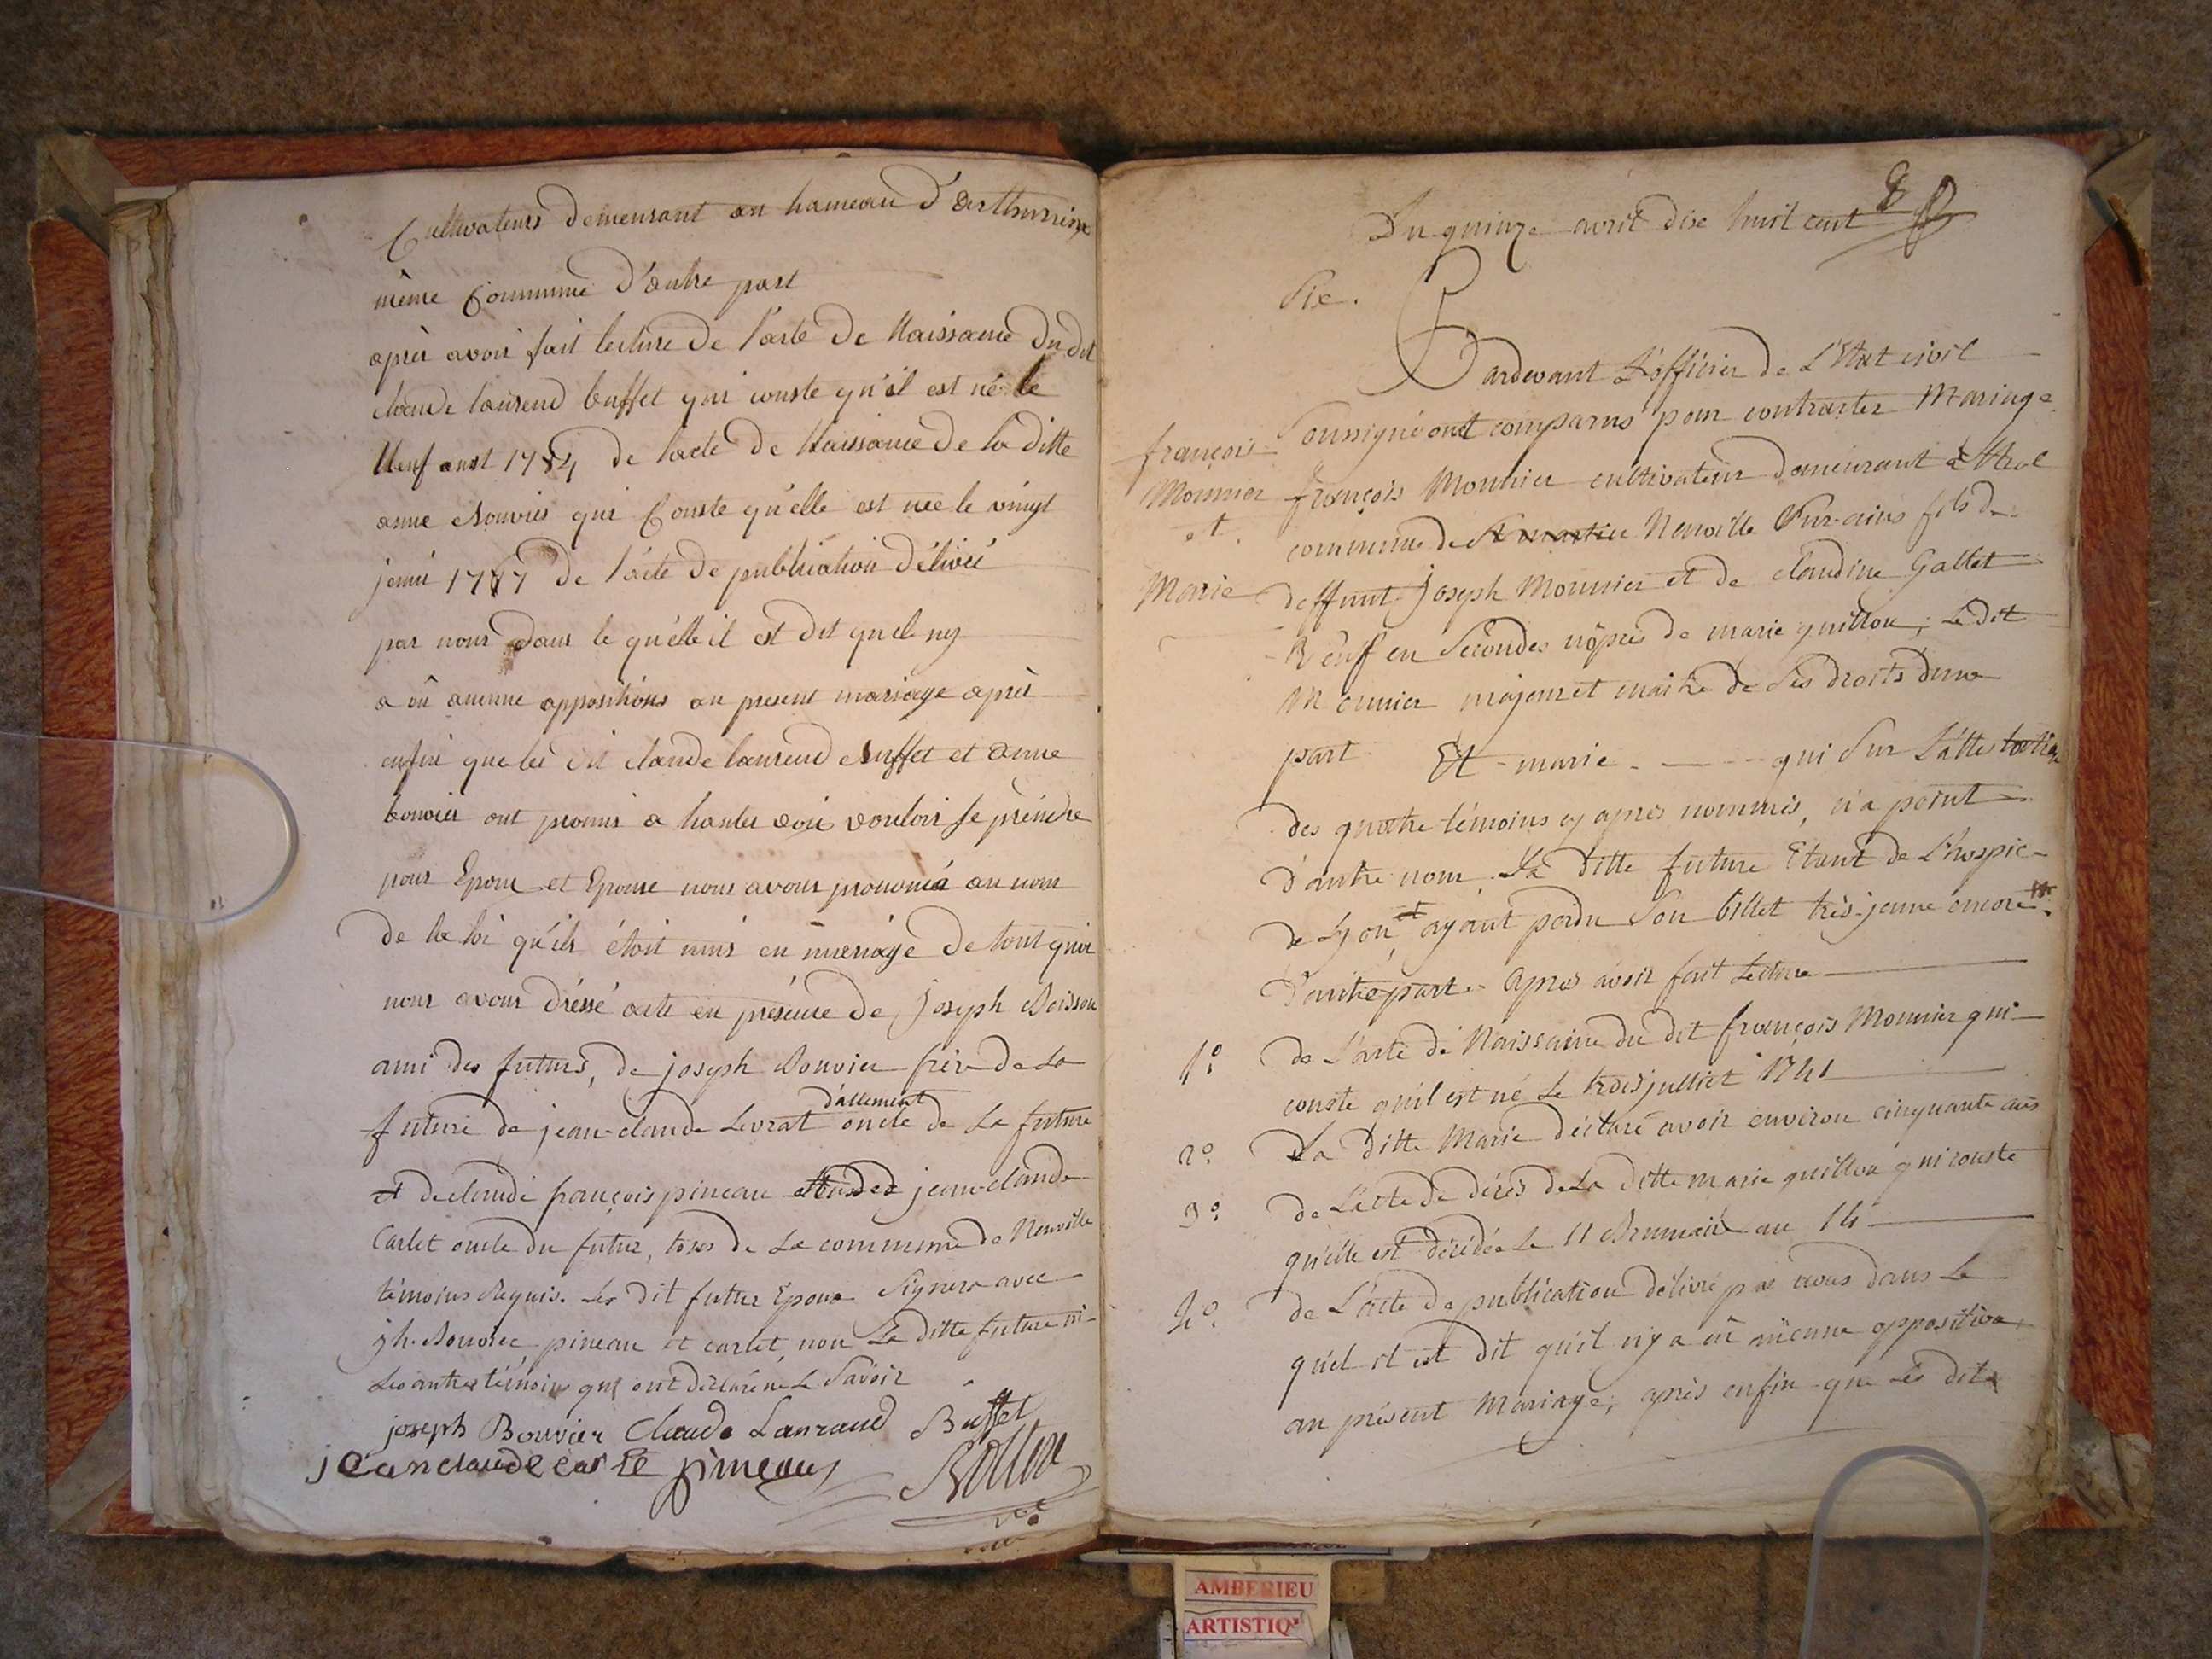 Cultivateurs demeurant au hameau d'
même Commune d'autre part
après avoir fait lecture de l'acte de Naissance du dit
claude laurend buffet qui conste qu'il est né le
Neuf aust 1784 de lacte de Naissance de la ditte
anne Bouvier qui Conste qu'elle est née le vingt
1787 de l'acte de publication délivré
par nous dans le qu'elle il est dit qu'el ny
a eû aucune oppositions au present mariage après
enfin que les dit claude laurend Buffet et anne
bouvier ont promis a hautes voix vouloir se prendre
pour Epoux et Epouse nous avons prononcé au nom
de la loi qu'ils étoit unis en mariage de tout quoi
nous avons dréssé acte en présence de Joseph Boisson
ami des futurs, de joseph Bouvier frère de la
future de jean-claude Levrat d'allement oncle de la future
et de claude françois pineau jean-claude
Carlet oncle du futur, tous de la commune de Neuville
témoins Requis. Les dit futur Epoux Signera avec
jh. Bouvier pineau et carlet, non La ditte future ni
Les autres témoins qui ont déclaré ne le Savoir
joseph Bouvier Claude Lauraud Buffet
jean claude carle pineau
8
Du quinze avril dix huit cent
Six.
Pardevant L'officier de L'Etat civil
Soussigné ont comparus pour contracter Mariage
françois
Monnier
et.
Marie
françois Monnier cultivateur demeurant à
commune de St martin Neuville Sur-ains fils de
deffunt Joseph Monnier et de claudine Gallet
Veuf en Sécondes nôpces de marie guillon; Le dit
Monnier majeur et maitre de Ses droits d'une
part Et marie - qui Sur L'attestation
des quatre témoins cy après nommés, n'a point
d'autre nom. La ditte future Etant de L'hospice
de Lyon et ayant perdu Son billet très-jeune encore.
D'autre part. Après avoir fait Lecture
1º de L'acte de Naissance du dit françois Monnier qui
conste qu'il est né Le trois julliet 1741
2º La ditte Marie déclare avoir environ cinquante ans
3º de L'acte de décès de La ditte marie guillon qui conste
qu'elle est décédée Le 11 Brumaire an 14
4º de L'acte de publication délivré par nous dans Le
quel il est dit qu'il n'y a eû aucune opposition
au présent Mariage; après enfin que Les dits
AMBERIEU
ARTISTIQ